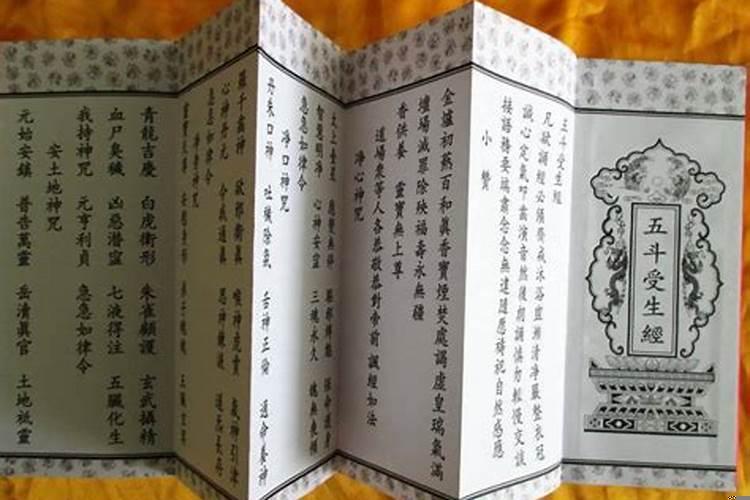 五斗受生經
五斗受生經
凡欲誦經必須齋戒沐浴
誠心定氣叩齒演音然後
小贊
金爐初爇百和真香寶煙焚處謁虛皇瑞氣滿
壇場滅罪除殃福壽永無疆
香供養 靈寶無上尊
道場衆等人各恭敬恭對帝前 誦經如法
淨心神咒
太上臺星 應變無停
智慧明淨 心神安寧 三魂永久
急急如律令
淨口神咒
丹朱口神 吐穢除氛 舌神正倫 通命養神
羅千齒神 卻邪衛真 喉神虎賁 氣神引津
心神丹元 令我通真 思神鍊液 道炁長存
急急如律令
淨身神咒
青龍吉慶 白虎衛形 朱雀顧護 玄武攝精
血尸臭穢 凶惡潛 七液得注 五臟化生
我持神咒 元亨利貞 急急如律令
安土地神咒
元始安鎮 普告萬靈 岳瀆真官 土地祗靈